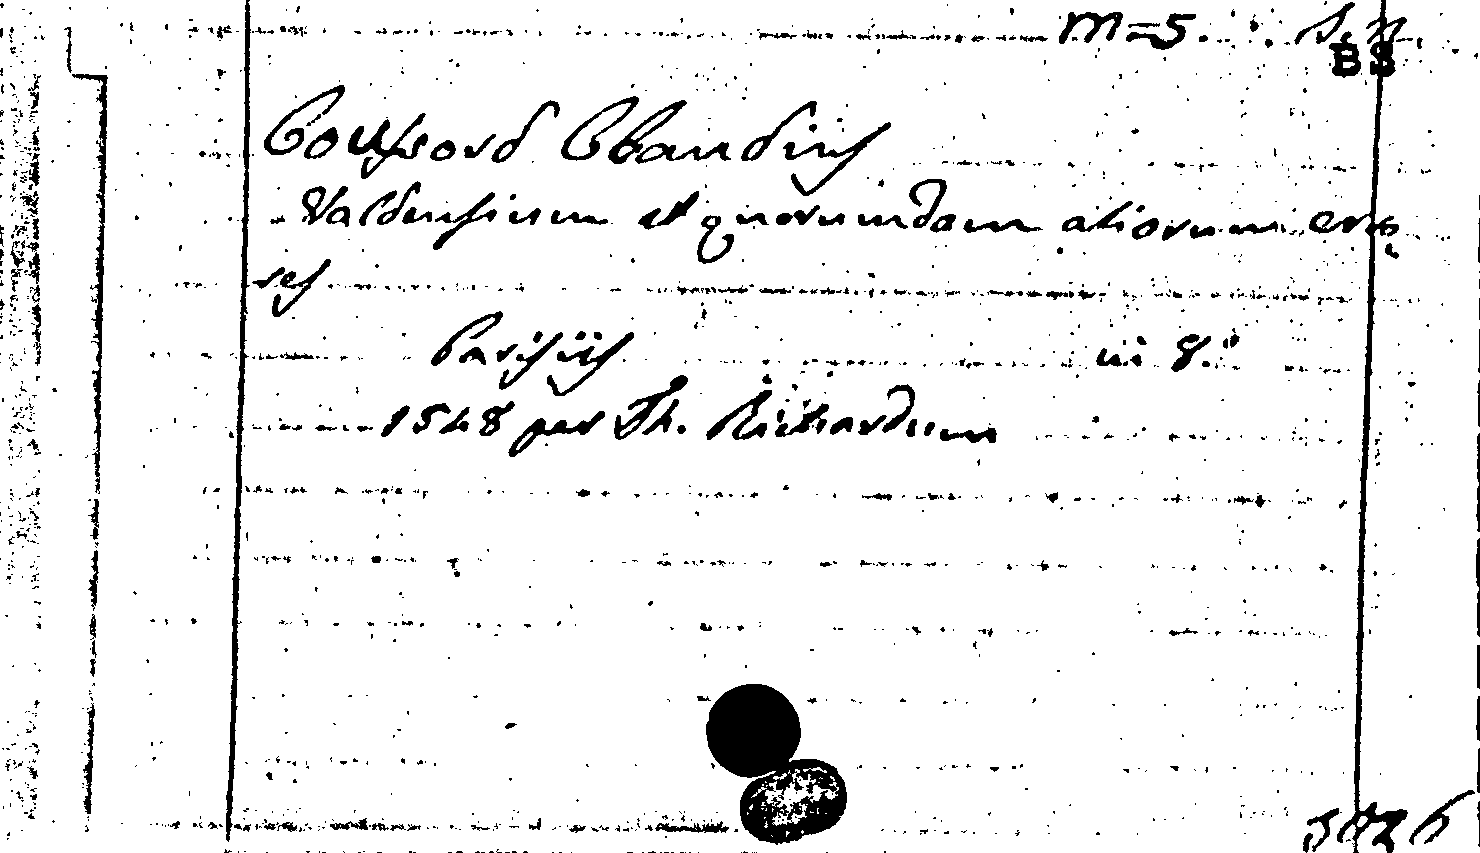 m=5. S. n.
BS
Coussord Claudius
Valdensium et quorumdam aliorum erro
res
Parisiis in 8.°
1548 per Th. Richardum